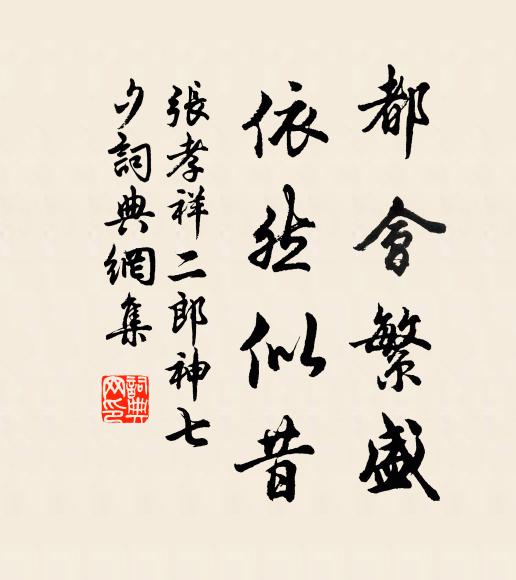 都會繁盛
依然似昔
張孝祥二郎神七
夕詞典網集
詞典
网印